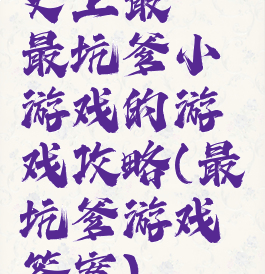 史上最
最坑爹小
游戏的游
戏攻略(最
坑爹游戏
答案)